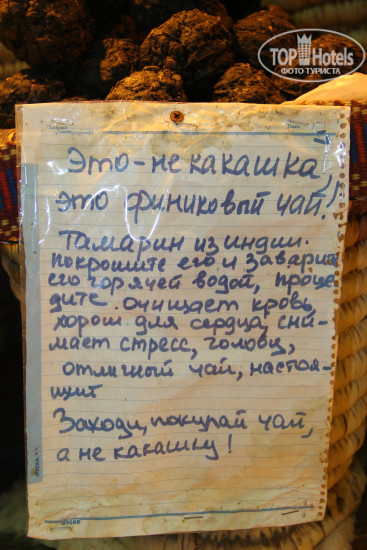 TOPHotels
ФОТО ТУРИСТА
Это - не какашка,
это финиковый чай!
Тамарин из индии.
покрошите его и заварит
его горячей водой, проце
дите. очищает кровь
хорош. для сердца, сни-
мает стресс, голову,
отличный чай, настоя-
щит
Заходи, покупай чай,
а не какашку!